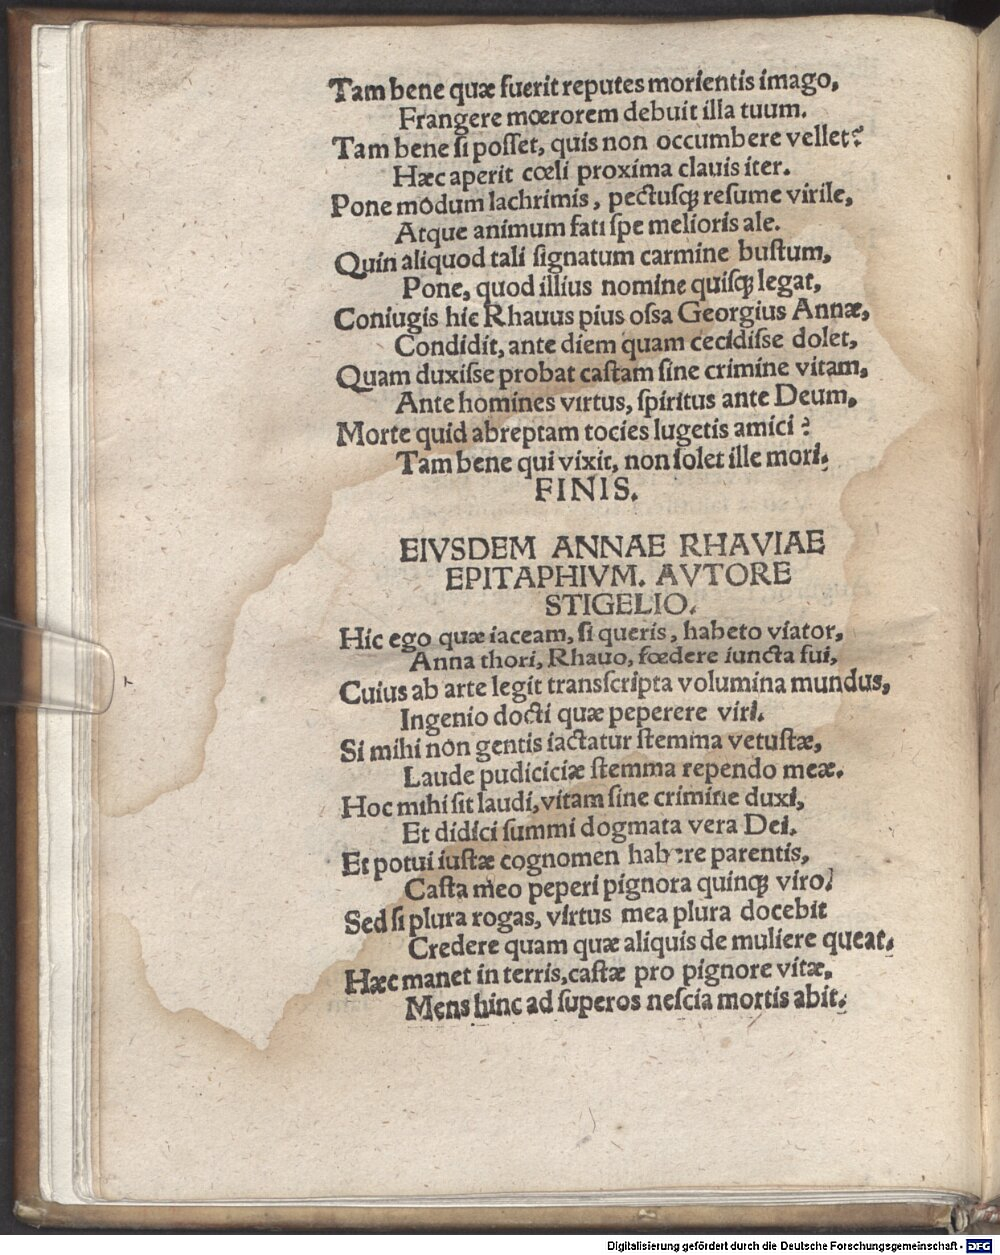 Tam bene quæ fuerit reputes morientis imago,
Frangere mœrorem debuit illa tuum.
Tam bene si posset, quis non occumbere vellet?
Hæc aperit cœli proxima clauis iter.
Pone modum lachrimis, pectusqꝫ resume virile,
Atque animum fati spe melioris ale.
Quin aliquod tali signatum carmine bustum,
Pone, quod illius nomine quisqꝫ legat,
Coniugis hic Rhauus pius ossa Georgius Annæ,
Condidit, ante diem quam cecidisse dolet,
Quam duxisse probat castam sine crimine vitam,
Ante homines virtus, spiritus ante Deum,
Morte quid abreptam tocies lugetis amici?
Tam bene qui vixit, non solet ille mori.
FINIS.
EIVSDEM ANNAE RHAVIAE
EPITAPHIVM. AVTORE
STIGELIO.
Hic ego quæ iaceam, si queris, habeto viator,
Anna thori, Rhauo, fœdere iuncta sui,
Cuius ab arte legit transcripta volumina mundus,
Ingenio docti quæ peperere viri.
Si mihi non gentis iactatur stemma vetustæ,
Laude pudiciciæ stemma rependo meæ.
Hoc mihi sit laudi, vitam sine crimine duxi,
Et didici summi dogmata vera Dei.
Et potui iustæ cognomen habere parentis,
Casta meo peperi pignora quinqꝫ viro.
Sed si plura rogas, virtus mea plura docebit
Credere quam quæ aliquis de muliere queat.
Hæc manet in terris, castæ pro pignore vitæ,
Mens hinc ad superos nescia mortis abit.
Digitalisierung gefördert durch die Deutsche Forschungsgemeinschaft - DFG